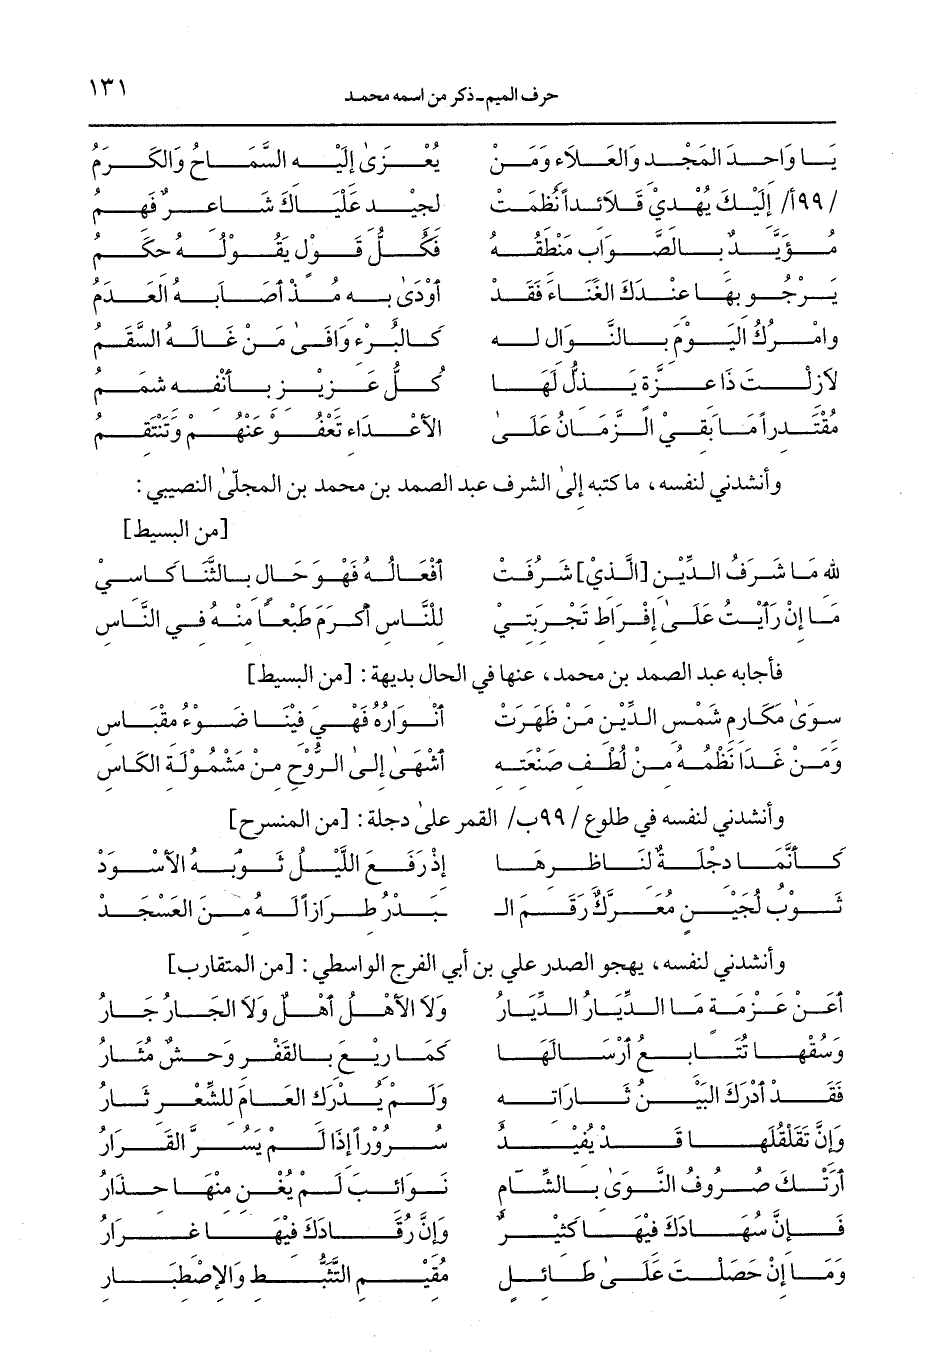 حرف الميم ـ ذكر من اسمه محمد ١٣١
يَا وَاحِدَ المَجْدِ وَالعَلَاءِ وَمَنْ يُعْزَىٰ إِلَيْهِ السَّمَاحُ وَالكَرَمُ
/٩٩أ/ إِلَيْكَ يُهْدِيْ قَلَائِداً نُظِمَتْ لِجِيْدِ عَلْيَاكَ شَاعِرٌ فَهِمُ
مُؤَيَّدٌ بِالصَّوَابِ مَنْطِقُهُ فَكُلُّ قَوْلٍ يَقُوْلُهُ حِكَمُ
يَرْجُو بِهَا عِنْدَكَ الغَنَاءَ فَقَدْ أَوْدَىٰ بِهِ مُذْ أَصَابَهُ العَدَمُ
وامْرُكَ اليَوْمَ بِالنَّوَالِ له كَالبُرْءِ وَافَىٰ مَنْ غَالَهُ السَّقَمُ
لَازِلْتَ ذَا عِزَّةٍ يَذِلُّ لَهَا كُلُّ عَزِيْزٍ بِأَنْفِهِ شَمَمُ
مُقْتَدِراً مَا بَقِيْ الزَّمَانُ عَلَىٰ الأَعْدَاءِ تَعْفُوْ عَنْهُمْ وَتَنْتَقِمُ
وأنشدني لنفسه، ما كتبه إلىٰ الشرف عبد الصمد بن محمد بن المجلّىٰ النصيبي:
[من البسيط]
لله مَا شَرَفُ الدِّيْنِ [الَّذِيْ] شَرُفَتْ أَفْعَالُهُ فَهْوَ حَالٍ بِالثَّنَا كَاسِيْ
مَا إِنْ رَأَيْتُ عَلَىٰ إِفْرَاطِ تَجْرِبَتِيْ لِلنَّاسِ أَكْرَمَ طَبْعاً مِنْهُ فِي النَّاسِ
فأجابه عبد الصمد بن محمد، عنها في الحال بديهة: [من البسيط]
سِوَىٰ مَكَارِمِ شَمْسِ الدِّيْنِ مَنْ ظَهَرَتْ أَنْوَارُهُ فَهْيَ فِيْنَا ضَوْءُ مِقْبَاسِ
وَمَنْ غَدَا نَظْمُهُ مِنْ لُطْفِ صَنْعَتِهِ أَشْهَىٰ إِلَىٰ الرُّوْحِ مِنْ مَشْمُوْلَةِ الكَاسِ
وأنشدني لنفسه في طلوع /٩٩ب/ القمر علىٰ دجلة: [من المنسرح]
كَأَنَّمَا دِجْلَةٌ لِنَاظِرِهَا إِذْ رَفَعَ اللَّيْلُ ثَوْبَهُ الأَسْوَدْ
ثَوْبُ لُجَيْنٍ مُعَرَّكٌ رَقَمَ الـ ـبَدْرُ طِرَازاً لَهُ مِنَ العَسْجَدْ
وأنشدني لنفسه، يهجو الصدر علي بن أبي الفرج الواسطي: [من المتقارب]
أَعِنْ عَزْمَةً مَا الدِّيَارُ الدِّيَارُ وَلَا الأَهْلُ أَهْلٌ وَلَا الجَارُ جَارُ
وَسُقْهَا تُتَابِعُ أَرْسَالَهَا كَمَا رِيْعَ بِالقَفْرِ وَحْشٌ مُثَارُ
فَقَدْ أَدْرَكَ البَيْنُ ثَارَاتِهِ وَلَمْ يُدْرَكِ العَامَ لِلشِّعْرِ ثَارُ
وَإِنَّ تَقَلْقُلَهَا قَدْ يُفِيْدُ سُرُوْراً إِذَا لَمْ يَسُرَّ القَرَارُ
أَرَتْكَ صُرُوْفُ النَّوَىٰ بِالشَّآمِ نَوَائِبَ لَمْ يُغْنِ مِنْهَا حِذَارُ
فَإِنَّ سُهَادَكَ فِيْهَا كَثِيْرٌ وَإِنَّ رُقَادَكَ فِيْهَا غِرَارُ
وَمَا إِنْ حَصَلْتَ عَلَىٰ طَائِلٍ مُقِيْمِ التَّثَبُّطِ وَالاِصْطِبَارِ